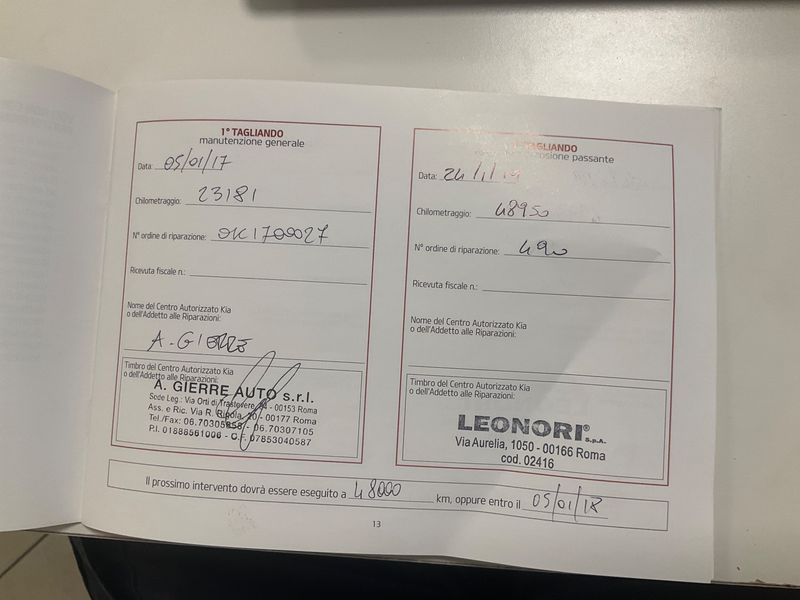 1° TAGLIANDO
manutenzione generale
Data: 05/01/17
Chilometraggio: 23181
N° ordine di riparazione: OK1700027
Ricevuta fiscale n.:
Nome del Centro Autorizzato Kia
o dell'Addetto alle Riparazioni:
A. GIERRE
Timbro del Centro Autorizzato Kia
o dell'Addetto alle Riparazioni:
A. GIERRE AUTO s.r.l.
Sede Leg.: Via Orti di Trastevere, - 00153 Roma
Ass. e Ric. Via R. Ripola, 20 - 00177 Roma
Tel./Fax: 06.70305858 - 06.70307105
P.I. 01888561008 - C.F. 07853040587
TAGLIANDO
passante
Data: 24/1/19
Chilometraggio: 48950
N° ordine di riparazione: 490
Ricevuta fiscale n.:
Nome del Centro Autorizzato Kia
o dell'Addetto alle Riparazioni:
Timbro del Centro Autorizzato Kia
o dell'Addetto alle Riparazioni:
LEONORI® S.p.A.
Via Aurelia, 1050 - 00166 Roma
cod. 02416
Il prossimo intervento dovrà essere eseguito a 48000 km, oppure entro il 05/01/18
13